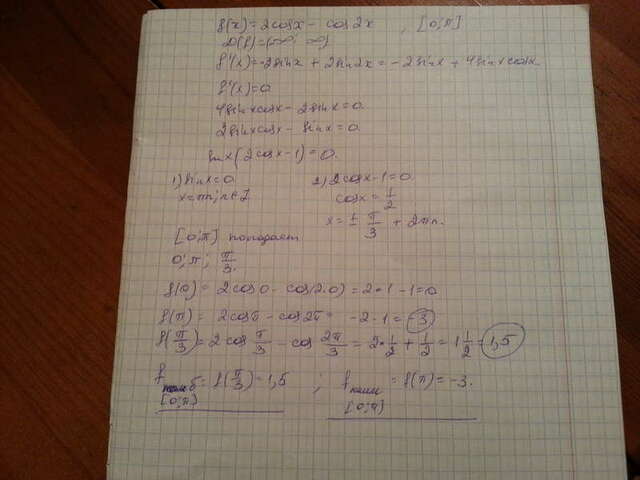 f(x) = 2cosx - cos2x , [0;π]
D(f) = (-∞; ∞)
f'(x) = -2sinx + 2sin2x = -2sinx + 4sinxcosx.
f'(x) = 0
4sinxcosx - 2sinx = 0
2sinxcosx - sinx = 0
sinx(2cosx - 1) = 0.
1) sinx = 0 2) 2cosx - 1 = 0
x = πn, n∈Z cosx = 1/2
x = ± π/3 + 2πn.
[0;π] попадают
0; π; π/3.
f(0) = 2cos0 - cos(2·0) = 2·1 - 1 = 1
f(π) = 2cosπ - cos2π = -2 - 1 = -3
f(π/3) = 2cos π/3 - cos 2π/3 = 2·1/2 + 1/2 = 1 1/2 = 1,5
f наиб = f(π/3) = 1,5 , f наим = f(π) = -3.
[0;π] [0;π]